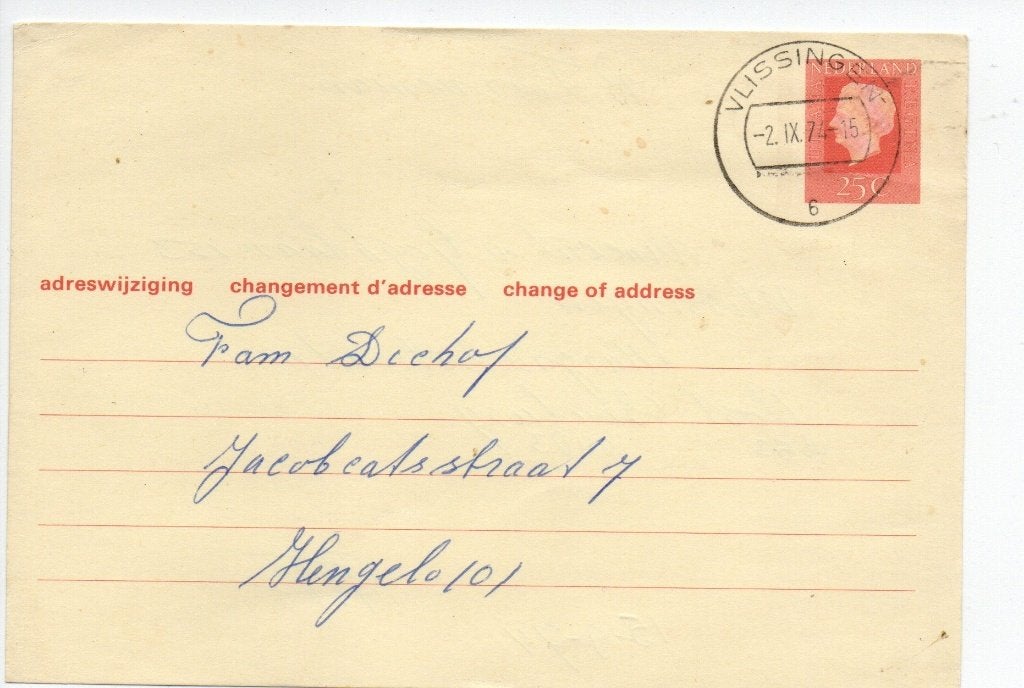 VLISSINGEN
NEDERLAND
-2.IX.74-15
25 C
6
adreswijziging changement d'adresse change of address
Fam Dechof
Jacobcatsstraat 7
Hengelo (O)